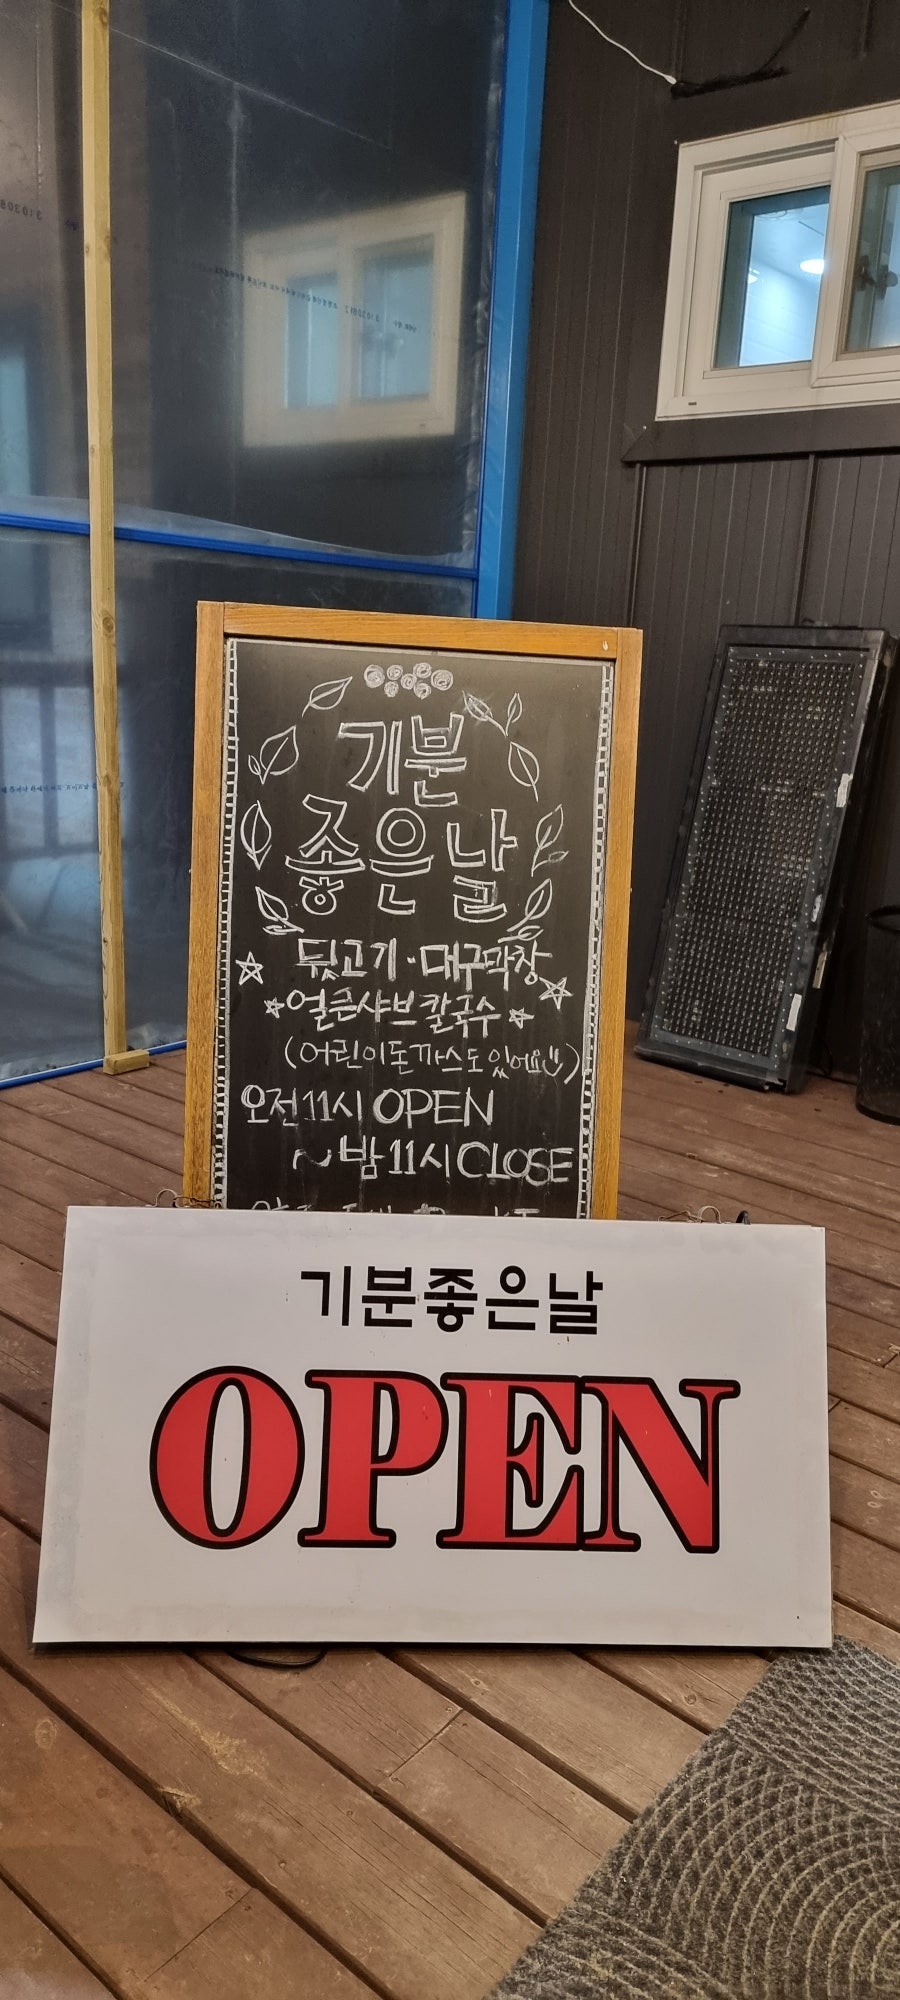 기분
좋은날
뒷고기·대구막창
얼큰샤브칼국수
(어린이돈까스도 있어요)
오전11시 OPEN
~밤11시 CLOSE
기분좋은날
OPEN